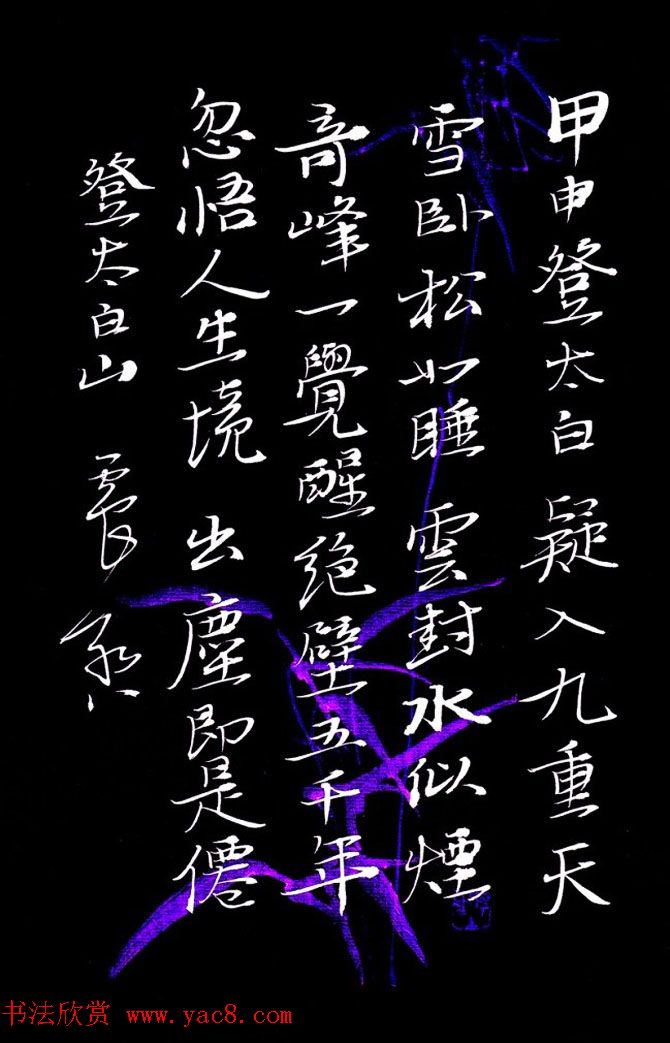 甲申登太白疑入九重天
雪卧松如睡雲封水似煙
奇峰一覺醒絶壁五千年
忽悟人生境出塵即是僊
登太白山
书法欣赏 www.yac8.com